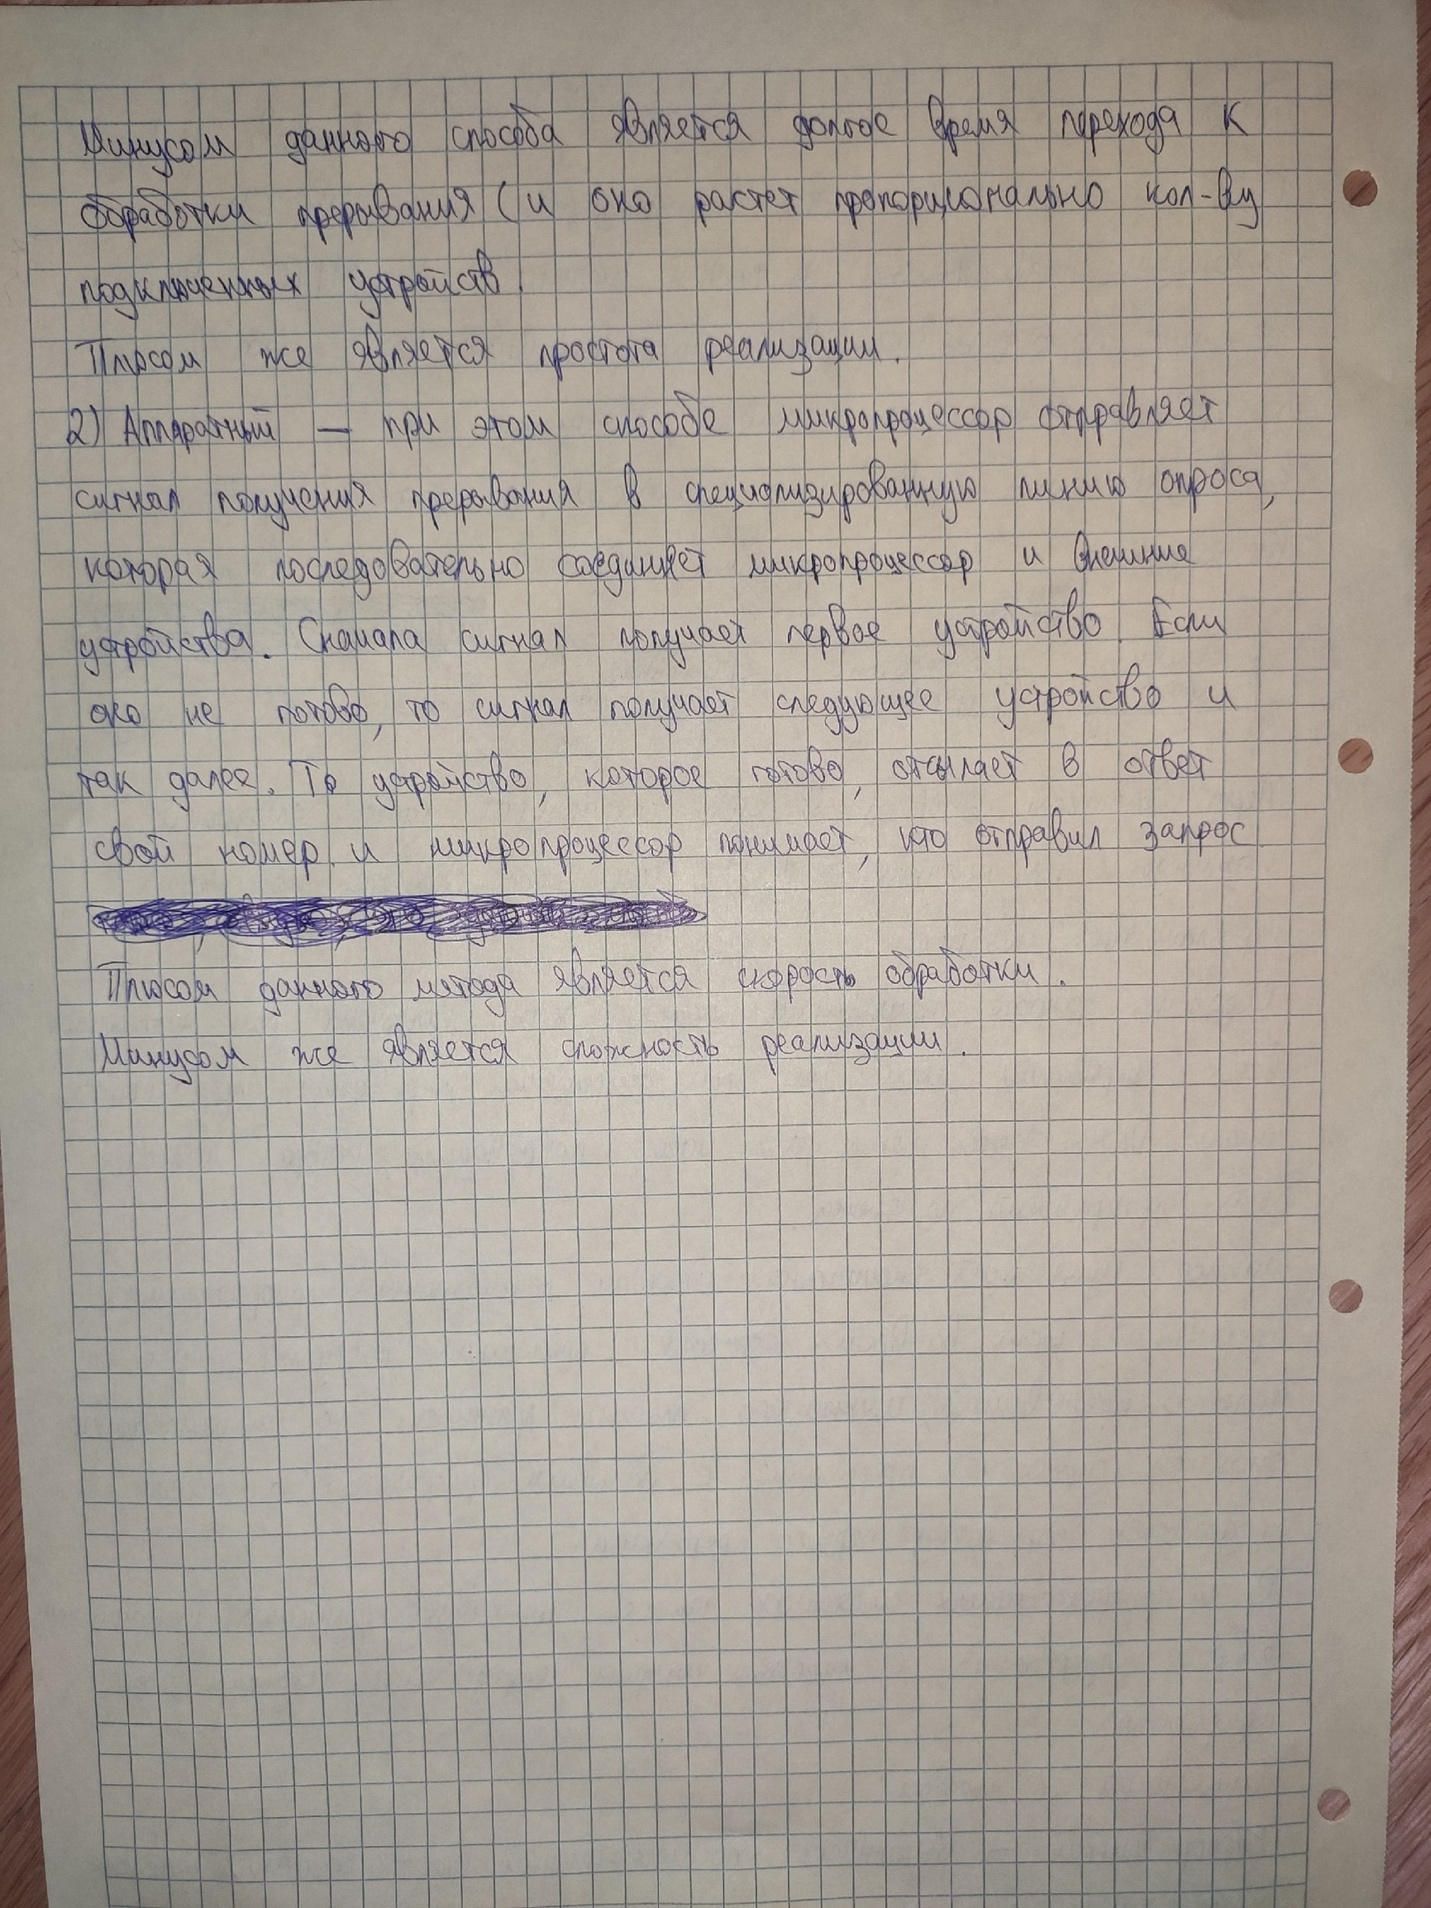 Минусом данного способа является долгое время перехода к
обработки прерывания (и оно растет пропорционально кол-ву
подключенных устройств.
Плюсом же является простота реализации.
2) Аппаратный — при этом способе микропроцессор отправляет
сигнал получения прерывания в специализированную линию опроса,
которая последовательно соединяет микропроцессор и внешние
устройства. Сначала сигнал получает первое устройство. Если
оно не готово, то сигнал получает следующее устройство и
так далее. То устройство, которое готово, отсылает в ответ
свой номер и микропроцессор понимает, кто отправил запрос
Плюсом данного метода является скорость обработки.
Минусом же является сложность реализации.